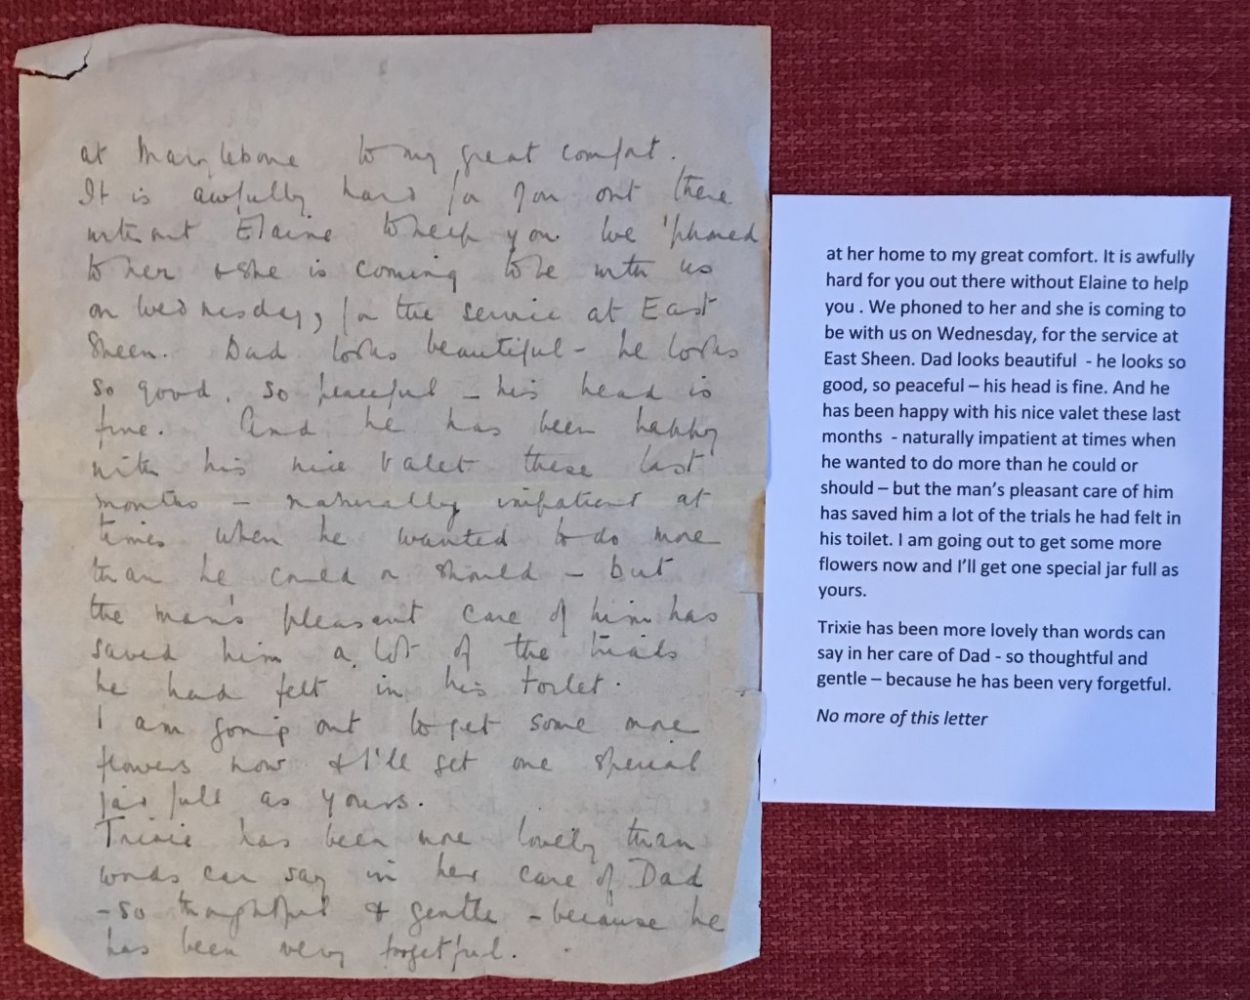 at Marylebone to my great comfort.
It is awfully hard for you out there
without Elaine to help you. We 'phoned
to her & she is coming to be with us
on Wednesday, for the service at East
Sheen. Dad looks beautiful - he looks
so good, so peaceful - his head is
fine. And he has been happy
with his nice valet these last
months - naturally impatient at
times when he wanted to do more
than he could or should - but
the man's pleasant care of him has
saved him a lot of the trials
he had felt in his toilet.
I am going out to get some more
flowers now & I'll get one special
jar full as yours.
Trixie has been more lovely than
words can say in her care of Dad
- so thoughtful & gentle - because he
has been very forgetful.
at her home to my great comfort. It is awfully
hard for you out there without Elaine to help
you . We phoned to her and she is coming to
be with us on Wednesday, for the service at
East Sheen. Dad looks beautiful - he looks so
good, so peaceful – his head is fine. And he
has been happy with his nice valet these last
months - naturally impatient at times when
he wanted to do more than he could or
should – but the man's pleasant care of him
has saved him a lot of the trials he had felt in
his toilet. I am going out to get some more
flowers now and I'll get one special jar full as
yours.
Trixie has been more lovely than words can
say in her care of Dad - so thoughtful and
gentle – because he has been very forgetful.
No more of this letter